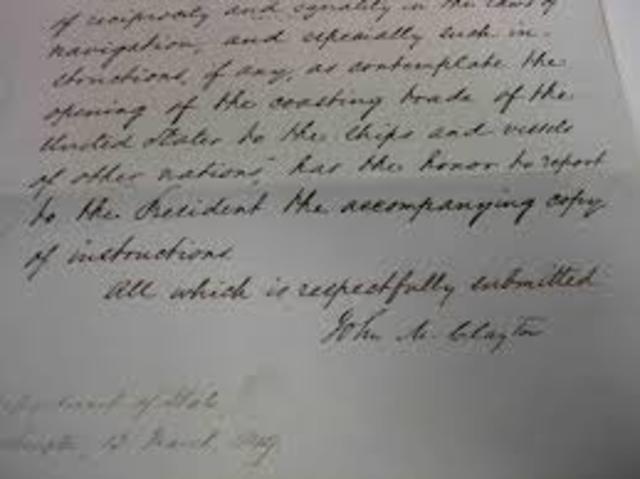 of reciprocity and equality in the laws of
navigation, and especially such in-
structions, if any, as contemplate the
opening of the coasting trade of the
United States to the ships and vessels
of other nations," has the honor to report
to the President the accompanying copy
of instructions.
All which is respectfully submitted
John M. Clayton
Department of State
March,